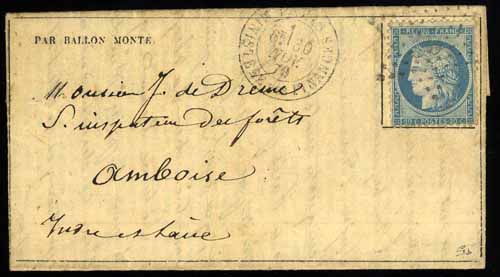 PAR BALLON MONTÉ.
30
NOV.
70
REPUB. FRANC.
20 C. POSTES 20 C.
Monsieur J. de Dreme
S. inspecteur des forêts
Amboise
Indre et Loire